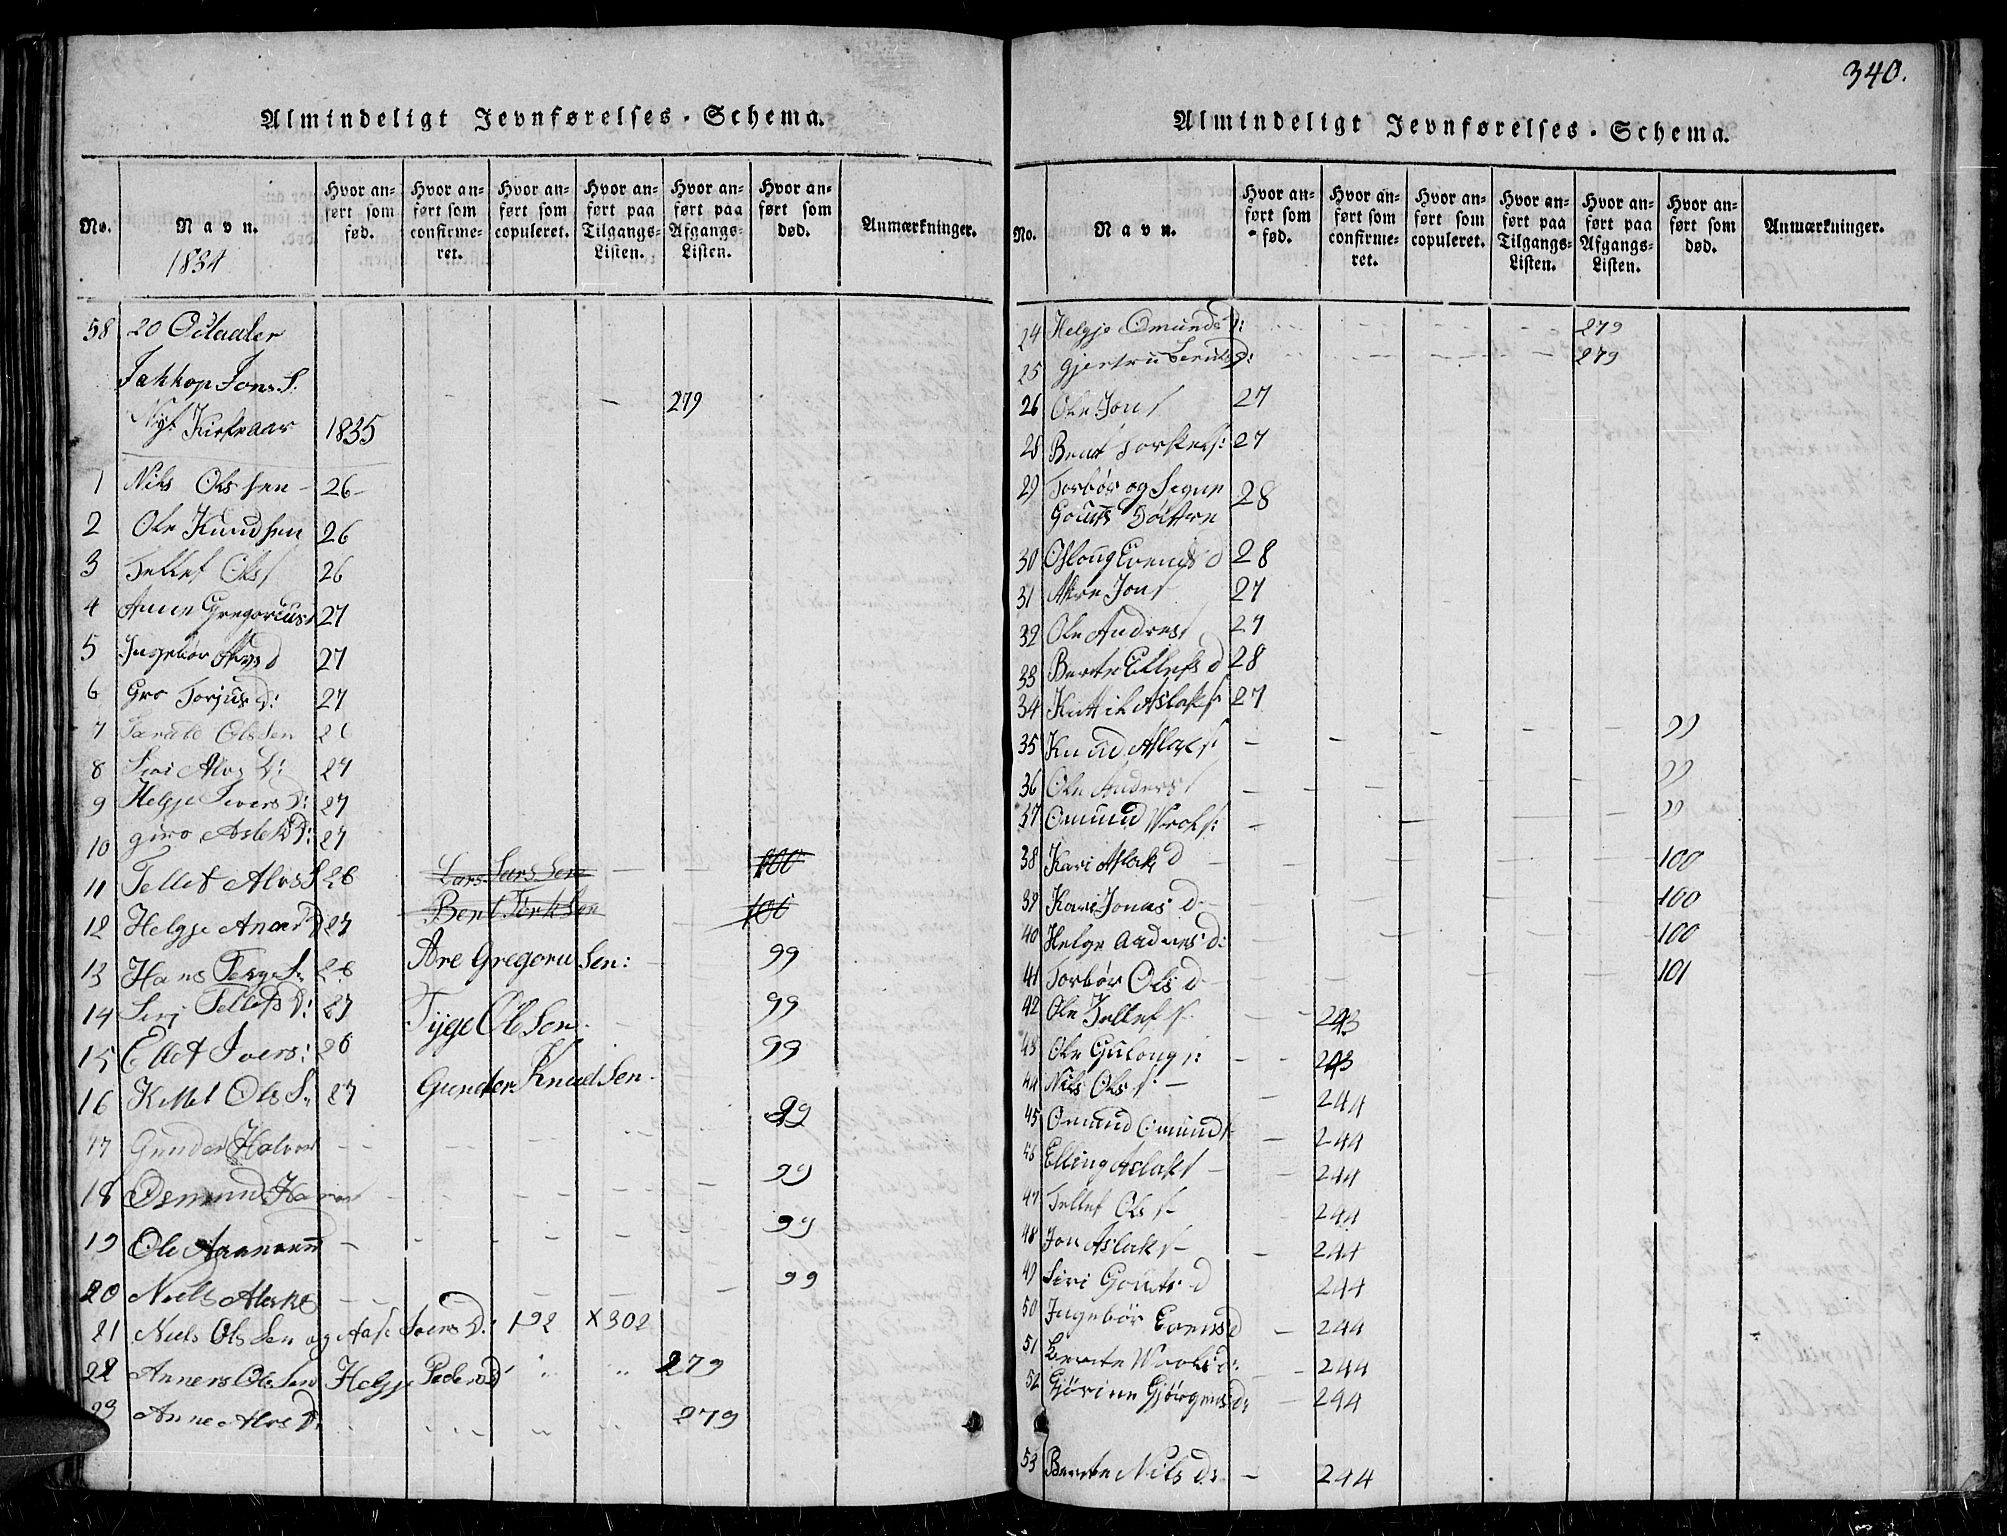 Almindeligt Jevnførelses-Schema.
No. Navn. Hvor anført som fød. Hvor anført som confirmeret. Hvor anført som copuleret. Hvor anført paa Tilgangs-Listen. Hvor anført paa Afgangs-Listen. Hvor anført som død. Anmærkninger.
1834
58 20
Jakkop Jons S. 279
Nyt Kirkeaar 1835
1 Nils Olssen 26
2 Ole Knudsen 26
3 Tellef Ols s 26
4 Anne Gregorius 27
5 Ingebør d 27
6 Gro Torjus D: 27
7 Olssen 26
8 Siri Alvs D: 27
9 Helgje Ivers D: 27
10 giro Aslak D: 27
11 Tellef Alvs S 26 Lars Lars Sen 100
12 Helgje D 27 Bent Terk Sen 100
13 Hans Terge S. 26 Are Gregoru Sen: 99
14 Siri Tellefs D: 27 Tÿge Ol Sen. 99
15 Ellef Ivers: 26 99
16 Kittel Ols S. 27 Gunder Knud Sen. 99
17 Gunder Halvor
18 Osmund 99
19 Ole 99
20 Niels 99
21 Niels Ols Sen og Aase Ivers D: 192 X 302
22 Anners Ols Sen Helgje Peders D 279
23 Anne Alvs D: 279
340.
Almindeligt Jevnførelses-Schema.
No. Navn. Hvor anført som fød. Hvor anført som confirmeret. Hvor anført som copuleret. Hvor anført paa Tilgangs-Listen. Hvor anført paa Afgangs-Listen. Hvor anført som død. Anmærkninger.
24 Helgje Omunds D: 279
25 Gjertru D: 279
26 Ole Jons 27
28 Bent Torkels: 27
29 Torbør og Signe 28
Gouts Døttre
30 Osloug Evens d 28
31 Are Jons 27
32 Ole Andres 27
33 Berte Ellefs d 28
34 Kittil Aslaks 27
35 Knud Aslaks: 99
36 Ole Anders 99
37 Omund Wrols: 99
38 Kari Aslak d 100
39 Kari Jonas d 100
40 Helge Aadnes d: 100
41 Torbør Ols d 101
42 Ole Tellef s. 243
43 Ole Gulougs: 243
44 Nils Ols s: 244
45 Omund Omunds 244
46 Elling Aslaks 244
47 Tellef Ols s 244
48 Jon Aslaks 244
49 Siri Gouts d 244
50 Ingebør Evens d 244
51 Berte Wrols d: 244
52 Gjørine Gjørgens d: 244
53 Berte Nils d: 244